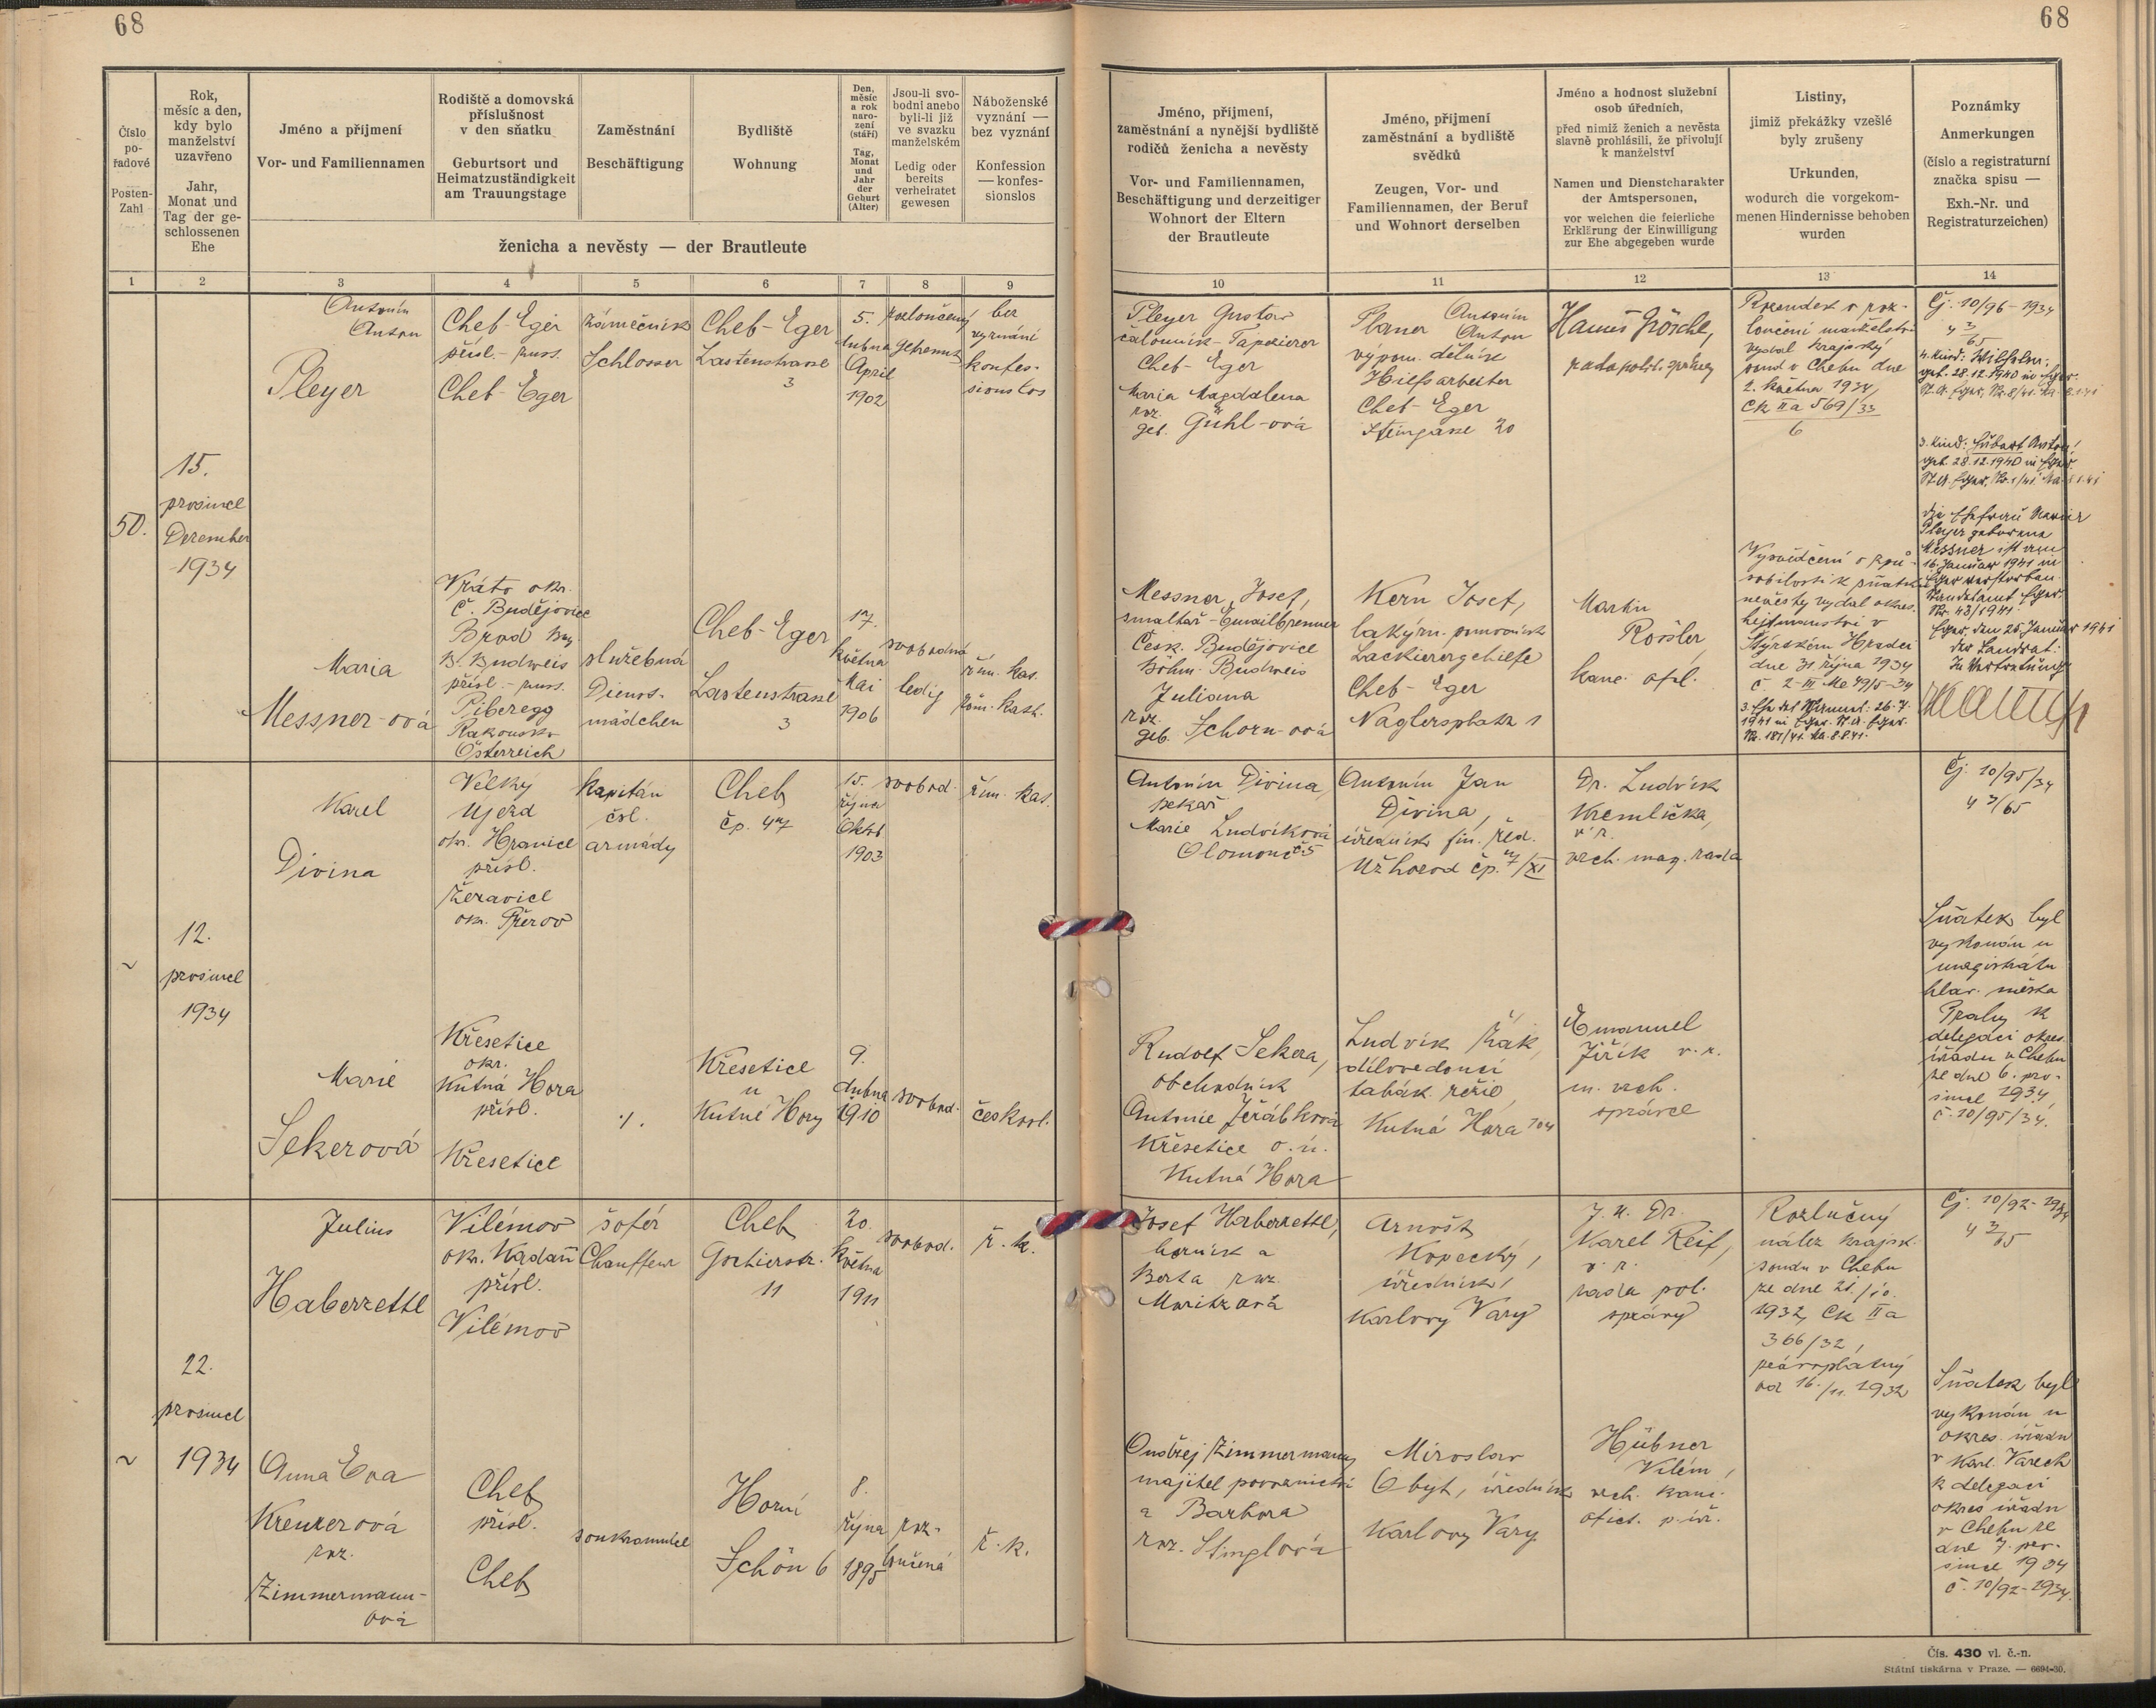 68
68
Číslo
po-
řadové
Posten-
Zahl
Rok,
měsíc a den,
kdy bylo
manželství
uzavřeno
Jahr,
Monat und
Tag der ge-
schlossenen
Ehe
Jméno a příjmení
Vor- und Familiennamen
Rodiště a domovská
příslušnost
v den sňatku
Geburtsort und
Heimatzuständigkeit
am Trauungstage
Zaměstnání
Beschäftigung
Bydliště
Wohnung
Den,
měsíc
a rok
naro-
zení
(stáří)
Tag,
Monat
und
Jahr
der
Geburt
(Alter)
Jsou-li svo-
bodni anebo
byli-li již
ve svazku
manželském
Ledig oder
bereits
verheiratet
gewesen
Náboženské
vyznání —
bez vyznání
Konfession
— konfes-
sionslos
ženicha a nevěsty — der Brautleute
Jméno, příjmení,
zaměstnání a nynější bydliště
rodičů ženicha a nevěsty
Vor- und Familiennamen,
Beschäftigung und derzeitiger
Wohnort der Eltern
der Brautleute
Jméno, příjmení
zaměstnání a bydliště
svědků
Zeugen, Vor- und
Familiennamen, der Beruf
und Wohnort derselben
Jméno a hodnost služební
osob úředních,
před nimiž ženich a nevěsta
slavně prohlásili, že přivolují
k manželství
Namen und Dienstcharakter
der Amtspersonen,
vor welchen die feierliche
Erklärung der Einwilligung
zur Ehe abgegeben wurde
Listiny,
jimiž překážky vzešlé
byly zrušeny
Urkunden,
wodurch die vorgekom-
menen Hindernisse behoben
wurden
Poznámky
Anmerkungen
(číslo a registraturní
značka spisu —
Exh.-Nr. und
Registraturzeichen)
1
2
3
4
5
6
7
8
9
10
11
12
13
14
50.
15.
prosince
Dezember
1934
Antonín
Anton
Pleyer
Cheb-Eger
přísl.-zust.
Cheb-Eger
zámečník
Schlosser
Cheb-Eger
Lastenstrasse
3
5.
dubna
April
1902
rozloučený
getrennt
bez
vyznání
konfes-
sionslos
Pleyer Gustav
čalouník-Tapezierer
Cheb-Eger
Maria Magdalena
roz.
geb. Gühl-ová
Planer Antonín
Anton
výpom. dělník
Hilfsarbeiter
Cheb-Eger
Steingasse 20
Hanuš Gröschl,
rada polit. správy
Rozsudek o roz-
loučení manželství
vydal krajský
soud v Chebu dne
2. května 1934,
Ck IIa 569/33
6
Čj. 10/96-1934
4 3/65
4. Kind: Wilhelm,
geb. 28.12.1940 in Eger.
3. Kind: Anton,
geb. 28.12.1940 in Eger.
Maria
Messner-ová
Vráto okr.
Č. Budějovice
B. Budweis
přísl.-zust.
Piberegg
Rakousko
Österreich
služebná
Dienst-
mädchen
Cheb-Eger
Lastenstrasse
3
17.
května
Mai
1906
svobodná
ledig
řím. kat.
röm. kath.
Messner, Josef,
smaltář-Emailbrenner
Česk. Budějovice
Böhm. Budweis
Juliana
roz.
geb. Schorn-ová
Kern Josef,
lakýrn. pomocník
Lackierergehilfe
Cheb-Eger
Naglersplatz 1
Martin
Rössler,
kanc. ofic.
Vysvědčení o způ-
sobilosti k sňatku
nevěsty vydal okres.
hejtmanství v
Štýrském Hradci
dne 31 října 1934
č. 2-III Me 49/5-34
die Ehefrau Maria
Pleyer geborene
Messner ist am
16. Januar 1941 in
Eger verstorben.
Standesamt Eger.
Nr. 43/1941.
Eger, den 25. Januar 1941
Der Landrat:
In Vertretung
12.
prosince
1934
Karel
Divina
Velký
Ujezd
okr. Hranice
přísl.
Žeravice
okr. Přerov
kapitán
čsl.
armády
Cheb
čp. 447
15.
října
Okt.
1903
svobod.
řím. kat.
Antonín Divina,
pekař
Marie Ludvíková
Olomouc č5
Antonín Jan
Divina,
úředník fin. řed.
Užhorod čp. 7/XI
Dr. Ludvík
Kremlička,
v. r.
vrch. mag. rada
Čj. 10/95/34
4 3/65
Sňatek byl
vykonán u
magistrátu
hlav. města
Prahy k
delegaci okres.
úřadu v Chebu
ze dne 6. pro-
since 1934,
č. 10/95/34.
Marie
Sekerová
Křesetice
okr.
Kutná Hora
přísl.
Křesetice
./.
Křesetice
u
Kutné Hory
9.
dubna
1910
svobod.
českosl.
Rudolf Sekera,
obchodník
Antonie Jeřábková
Křesetice o. ú.
Kutná Hora
Ludvík Žák,
dílovedoucí
tabák. režie,
Kutná Hora 704
Emanuel
Jiřík v. r.
m. vrch.
správce
22.
prosince
1934
Julius
Haberzettl
Vilémov
okr. Kadaň
přísl.
Vilémov
šofér
Chauffeur
Cheb
11
20.
května
1911
svobod.
ř. k.
Josef Haberzettl,
horník a
Berta roz.
Moritzová
Arnošt
Kopecký,
úředník,
Karlovy Vary
J. U. Dr.
Karel Reif,
v. r.
rada pol.
správy
Rozlučný
nález krajsk.
soudu v Chebu
ze dne 21./10.
1932, Ck IIa
366/32,
právoplatný
od 16./11. 1932
Čj. 10/92-1934
4 3/65
Sňatek byl
vykonán u
okres. úřadu
v Karl. Varech
k delegaci
okres úřadu
v Chebu ze
dne 7. pro-
since 1934
č. 10/92-1934.
Anna Eva
Kreuzerová
roz.
Zimmermann-
ová
Cheb
přísl.
Cheb
soukromnice
Horní
Schön 6
8.
října
1895
roz-
loučená
ř. k.
Ondřej Zimmermann,
majitel povoznictví
a Barbora
roz. Stinglová
Miroslav
Obyt, úředník
Karlovy Vary.
Hübner
Vilém,
vrch. kanc.
ofici. p. úř.
Čís. 430 vl. č.-n.
Státní tiskárna v Praze. — 6694-30.